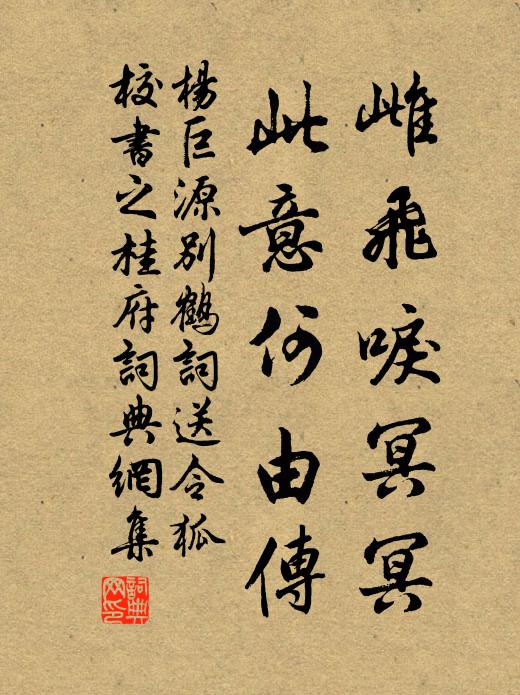 雌飛唳冥冥
此意何由傳
楊巨源別鶴詞送令狐
校書之桂府詞典網集
詞典網印